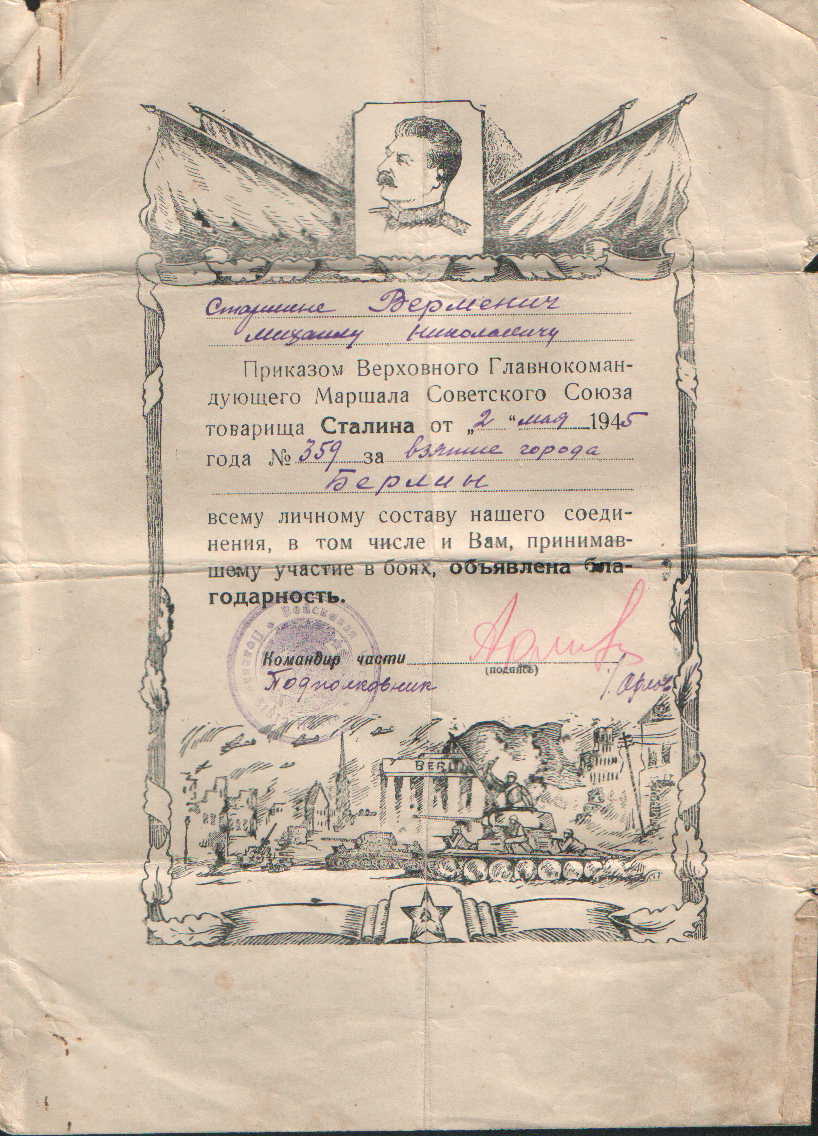 Старшине Верменич
Михаилу Николаевичу
Приказом Верховного Главнокоман-
дующего Маршала Советского Союза
товарища Сталина от „2“ мая 1945
года № 359 за взятие города
Берлин
всему личному составу нашего соеди-
нения, в том числе и Вам, принимав-
шему участие в боях, объявлена бла-
годарность.
Войсковая
Командир части
(подпись)
Подполковник Орлов
BERLIN